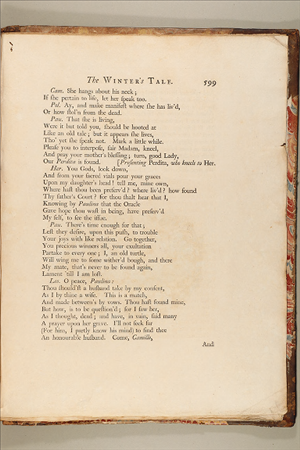 The WINTER's TALE. 599
Cam. She hangs about his neck;
If she pertain to life, let her speak too.
Pol. Ay, and make manifest where she has liv'd,
Or how stol'n from the dead.
Pau. That she is living,
Were it but told you, should be hooted at
Like an old tale; but it appears she lives,
Tho' yet she speak not. Mark a little while.
Please you to interpose, fair Madam, kneel,
And pray your mother's blessing; turn, good Lady,
Our Perdita is found. [Presenting Perdita, who kneels to Her.
Her. You Gods, look down,
And from your sacred vials pour your graces
Upon my daughter's head! tell me, mine own,
Where hast thou been preserv'd? where liv'd? how found
Thy father's Court? for thou shalt hear that I,
Knowing by Paulina that the Oracle
Gave hope thou wast in being, have preserv'd
My self, to see the issue.
Pau. There's time enough for that;
Lest they desire, upon this push, to trouble
Your joys with like relation. Go together,
You precious winners all, your exultation
Partake to every one; I, an old turtle,
Will wing me to some wither'd bough, and there
My mate, that's never to be found again,
Lament 'till I am lost.
Leo. O peace, Paulina:
Thou should'st a husband take by my consent,
As I by thine a wife. This is a match,
And made between's by vows. Thou hast found mine,
But how, is to be question'd; for I saw her,
As I thought, dead; and have, in vain, said many
A prayer upon her grave. I'll not seek far
(For him, I partly know his mind) to find thee
An honourable husband. Come, Camillo,
And